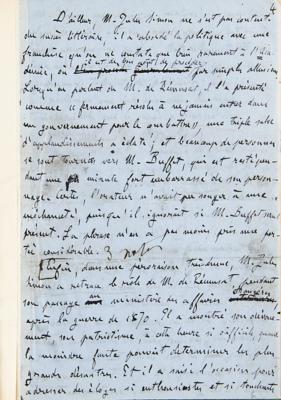 4
D'ailleurs, M. Jules Simon ne s'est pas contenté
du succès littéraire, il a abordé la politique avec une
franchise qu'on ne constate que bien rarement à l'Aca-
démie, où il est de bon goût de procéder par simple allusion
Lorsqu'en parlant de M. de Rémusat, il l'a présenté
comme « fermement résolu à ne jamais entrer dans
un gouvernement pour le combattre », une triple salve
d'applaudissements a éclaté ; et beaucoup de personnes
se sont tournées vers M. Buffet, qui est resté pen-
dant une minute fort embarrassé de son person-
nage. Certes, l'orateur n'avait pas songé à une
méchanceté, puisqu'il ignorait si M. Buffet serait
présent. La phrase n'en a pas moins pris une por-
tée considérable.
Enfin, dans une péroraison très émue, M. Jules
Simon a retracé le rôle de M. de Rémusat, pendant
son passage au ministère des affaires étrangères
après la guerre de 1870. Il a montré son dévoue-
ment, son patriotisme, à cette heure si difficile, quand
la moindre faute pouvait déterminer les plus
grands désastres. Et il a saisi l'occasion pour
adresser des éloges si enthousiastes et si touchants